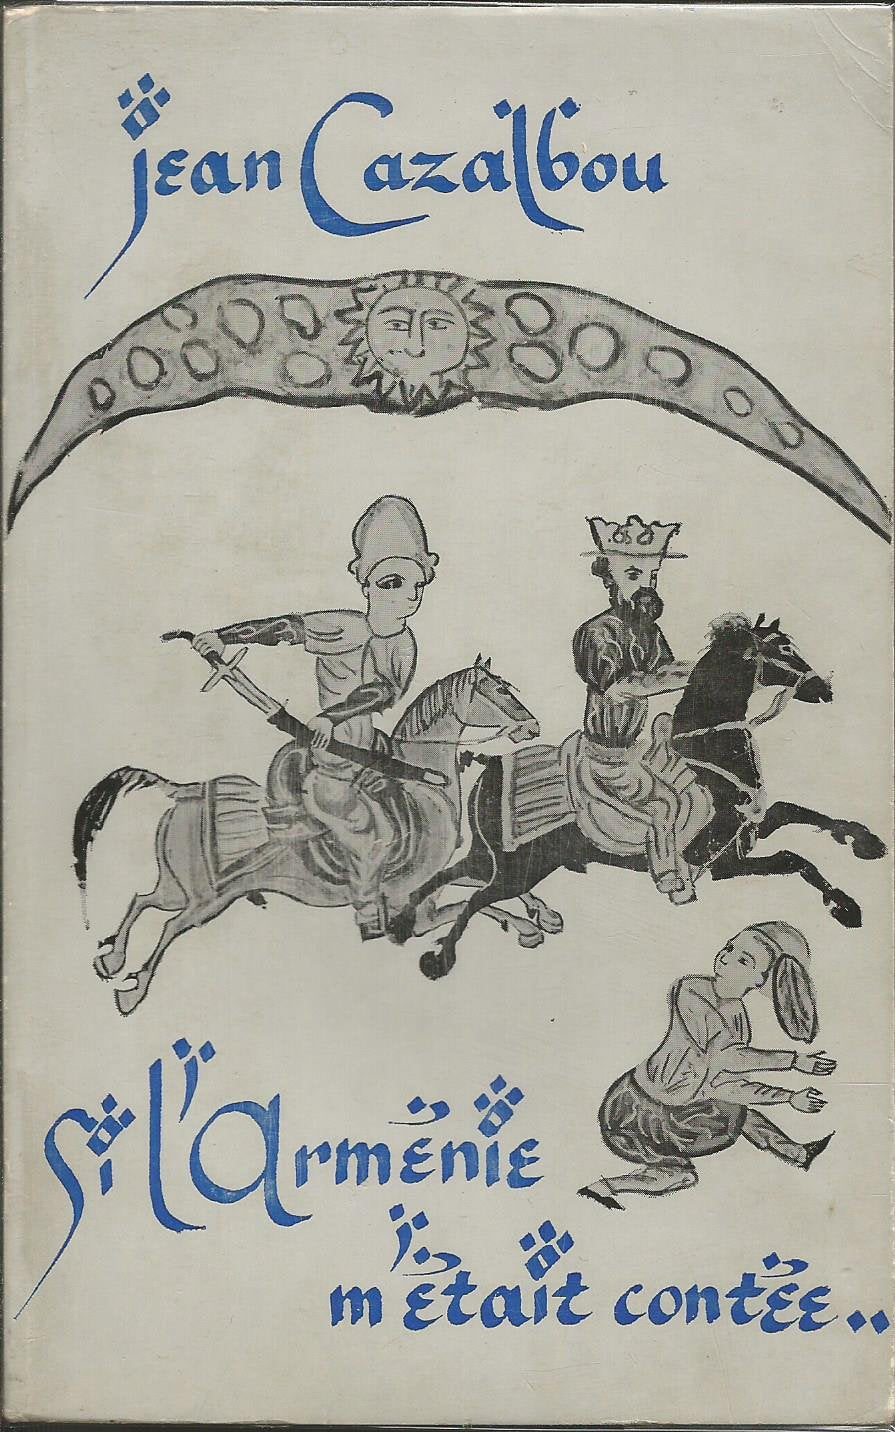 jean Cazalbou
Si l'Arménie
m'était contée..